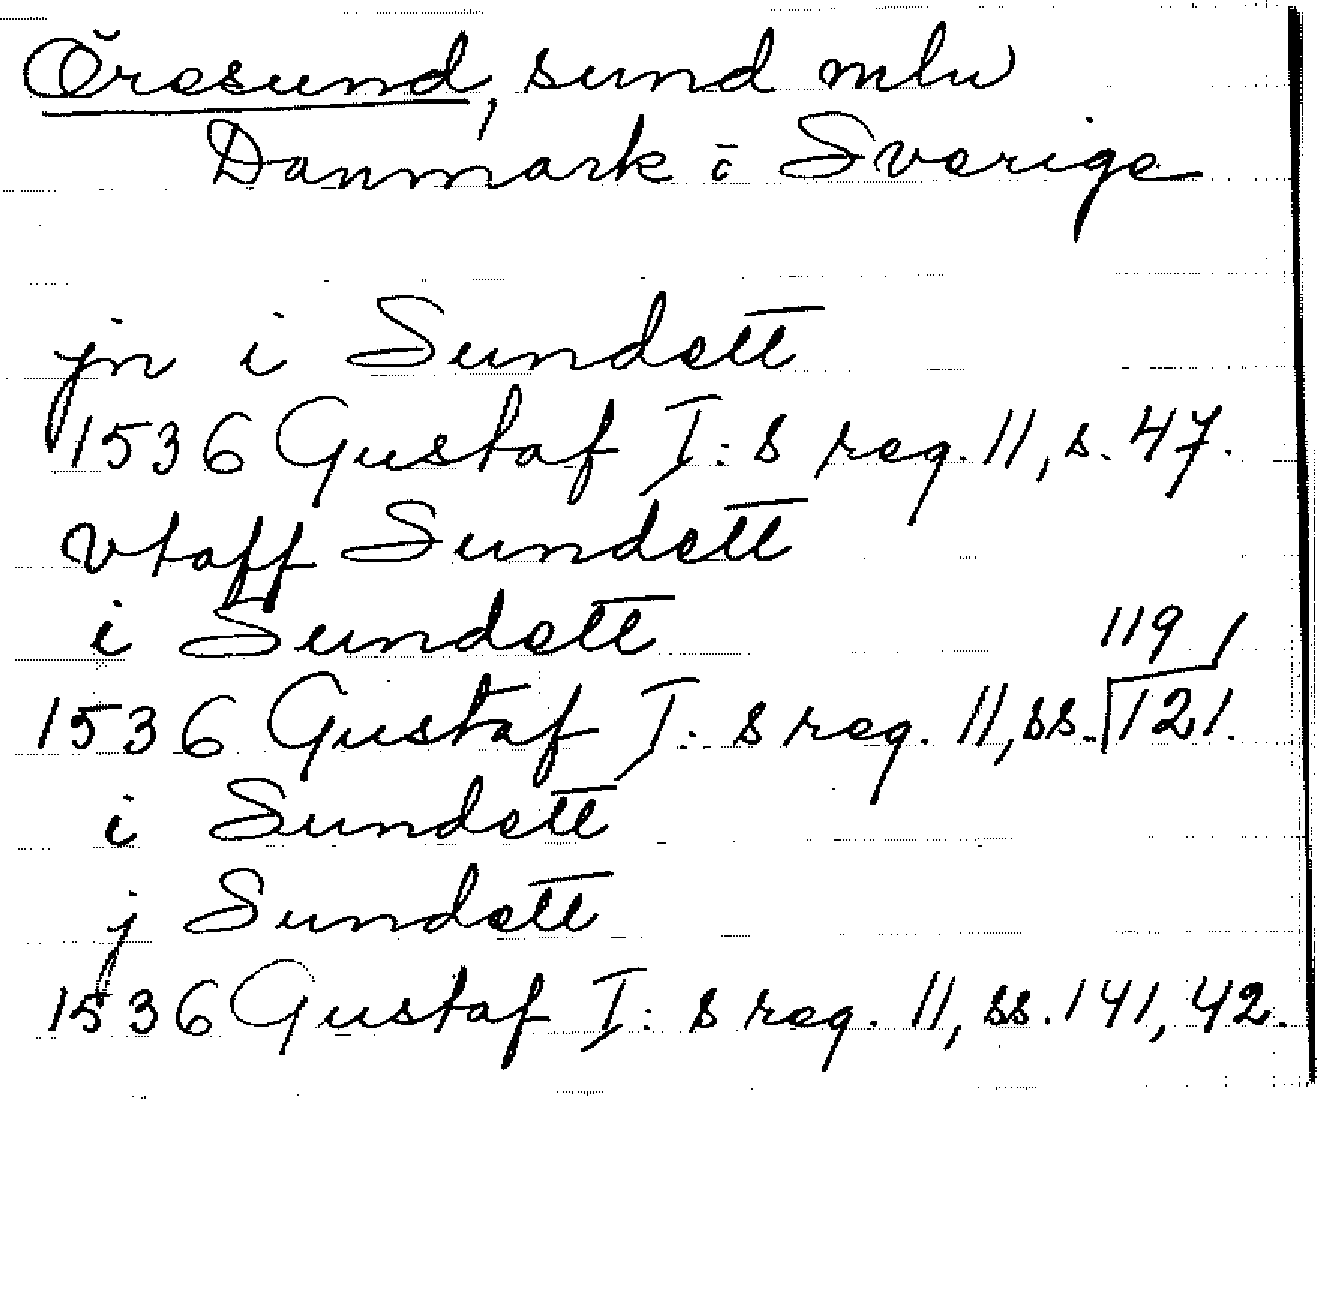 Öresund, sund mlu
Danmark o Sverige
jn i Sundett
1536 Gustaf I:s reg. 11, s. 47.
vtaff Sundett
i Sundett 119,
1536 Gustaf I:s reg. 11, ss. 121.
i Sundett
j Sundett
1536 Gustaf I:s reg. 11, ss. 141, 42.